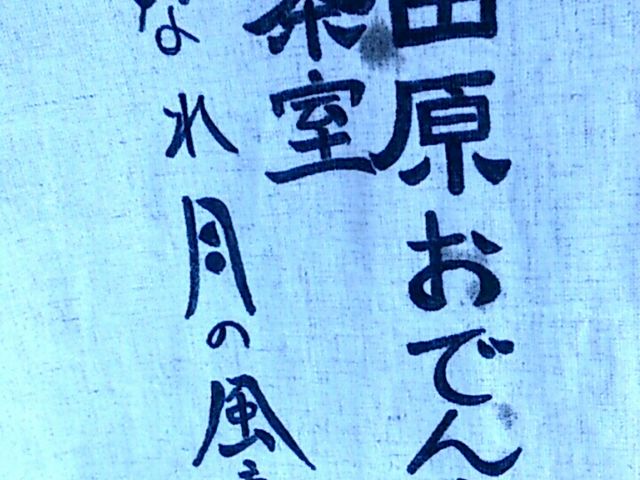 田原おでん
茶室
なれ月の風